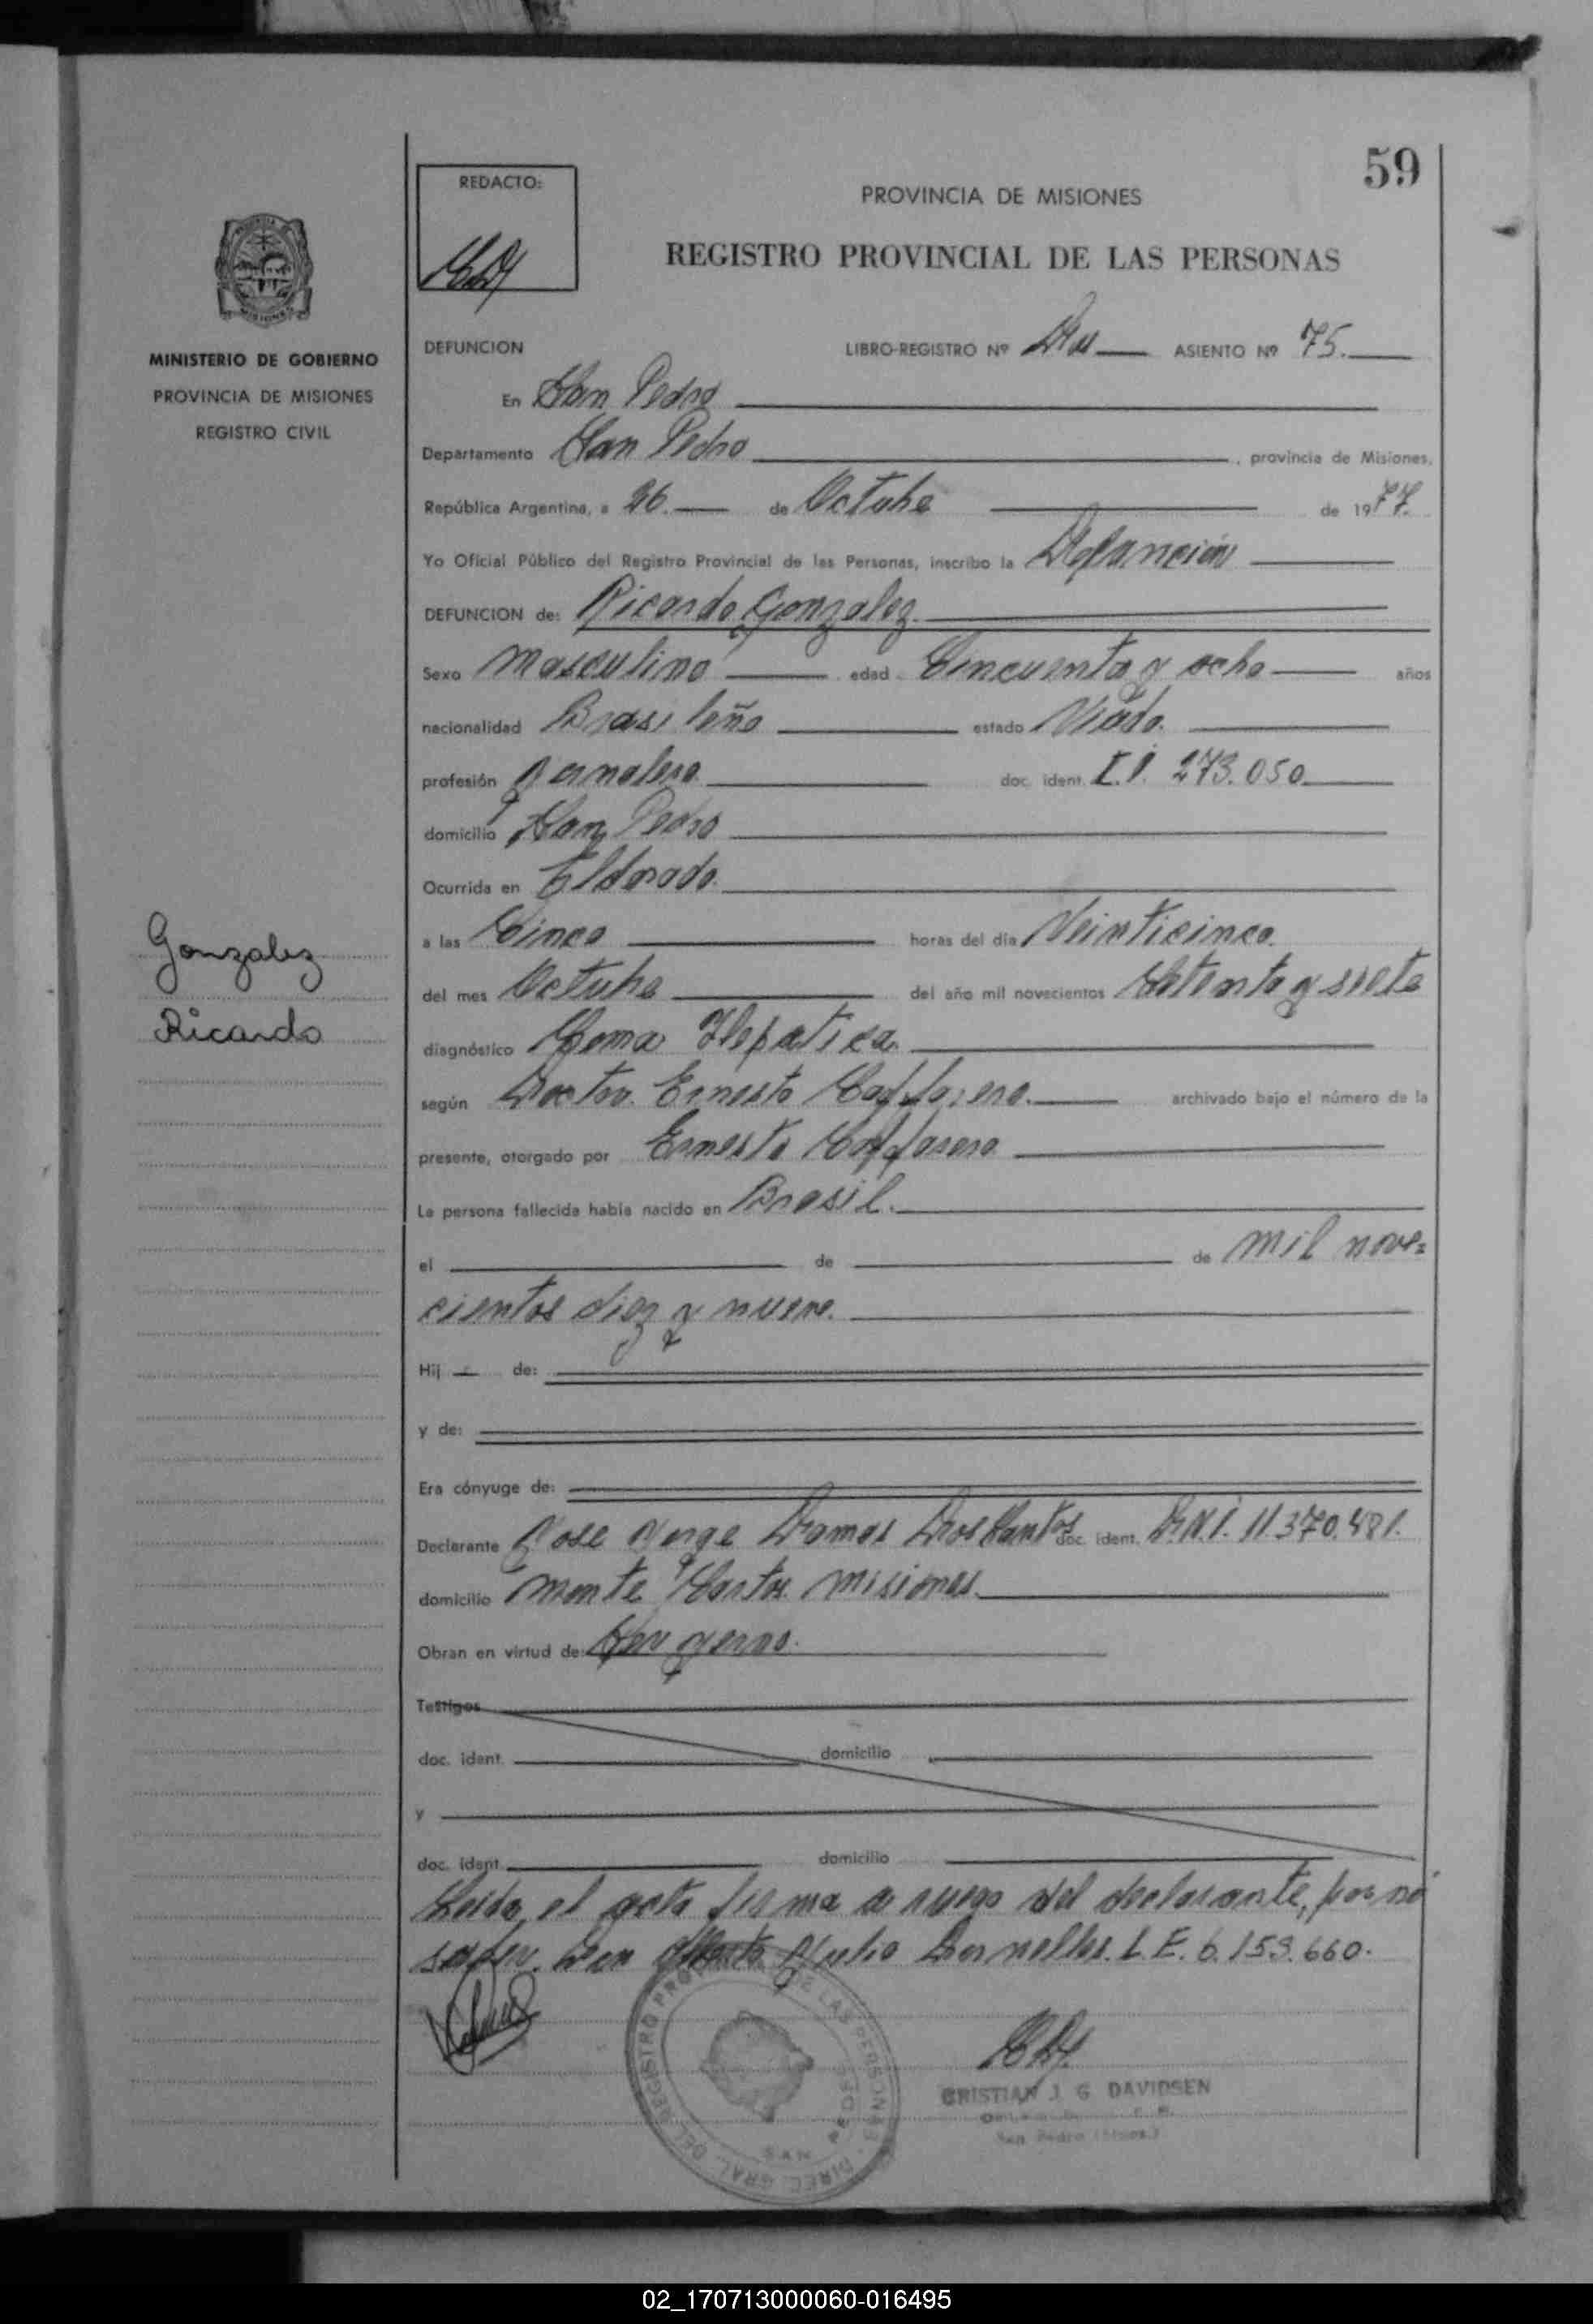 59
REDACTO:
PROVINCIA DE MISIONES
REGISTRO PROVINCIAL DE LAS PERSONAS
MINISTERIO DE GOBIERNO
PROVINCIA DE MISIONES
REGISTRO CIVIL
DEFUNCION LIBRO-REGISTRO Nº Dos ASIENTO Nº 75.
En San Pedro
Departamento San Pedro, provincia de Misiones,
República Argentina, a 26. de Octubre de 1977.
Yo Oficial Público del Registro Provincial de las Personas, inscribo la Defunción
DEFUNCION de: Ricardo Gonzalez.
Sexo Masculino edad Cincuenta y ocho años
nacionalidad Brasileño estado Viudo.
profesión Jornalero doc. ident. C.I. 273.050
domicilio San Pedro
Ocurrida en Eldorado.
a las Cinco horas del día Veinticinco.
del mes Octubre del año mil novecientos Setenta y siete
Gonzalez
Ricardo
diagnóstico Coma Hepatica.
según Doctor Ernesto archivado bajo el número de la
presente, otorgado por Ernesto
La persona fallecida había nacido en Brasil.
el de de mil nove=
cientos diez y nueve.
Hij de:
y de:
Era cónyuge de:
Declarante Jose Jorge Ramos Dos Santos doc. ident. D.N.I. 11.370.481.
domicilio Monte Misiones
Obran en virtud de: Ser yerno.
Testigos
doc. ident. domicilio
y
doc. ident. domicilio
Leida el acta firma a ruego del declarante, por no
saber, Don Julio Dornelles. L.E. 6.153.660.
DIREC. GRAL. DEL REGISTRO PROVINCIAL DE LAS PERSONAS
SAN PEDRO
CRISTIAN J. G. DAVIDSEN
San Pedro (Mnes.)
02_170713000060-016495